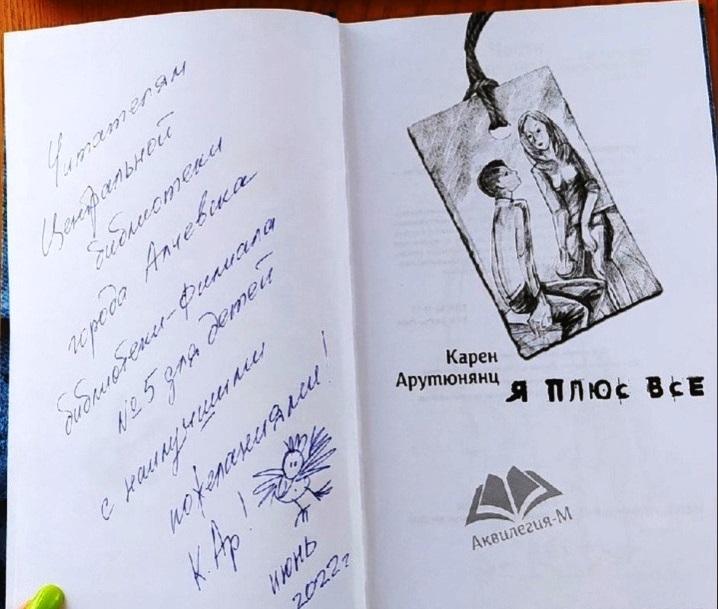 Читателям
Центральной
библиотеки
города Алчевска
библиотеки-филиала
№5 для детей
с наилучшими
пожеланиями!
К. Ар!
июнь
2022г
Карен
Арутюнянц
Я ПЛЮС ВСЕ
Аквилегия-М